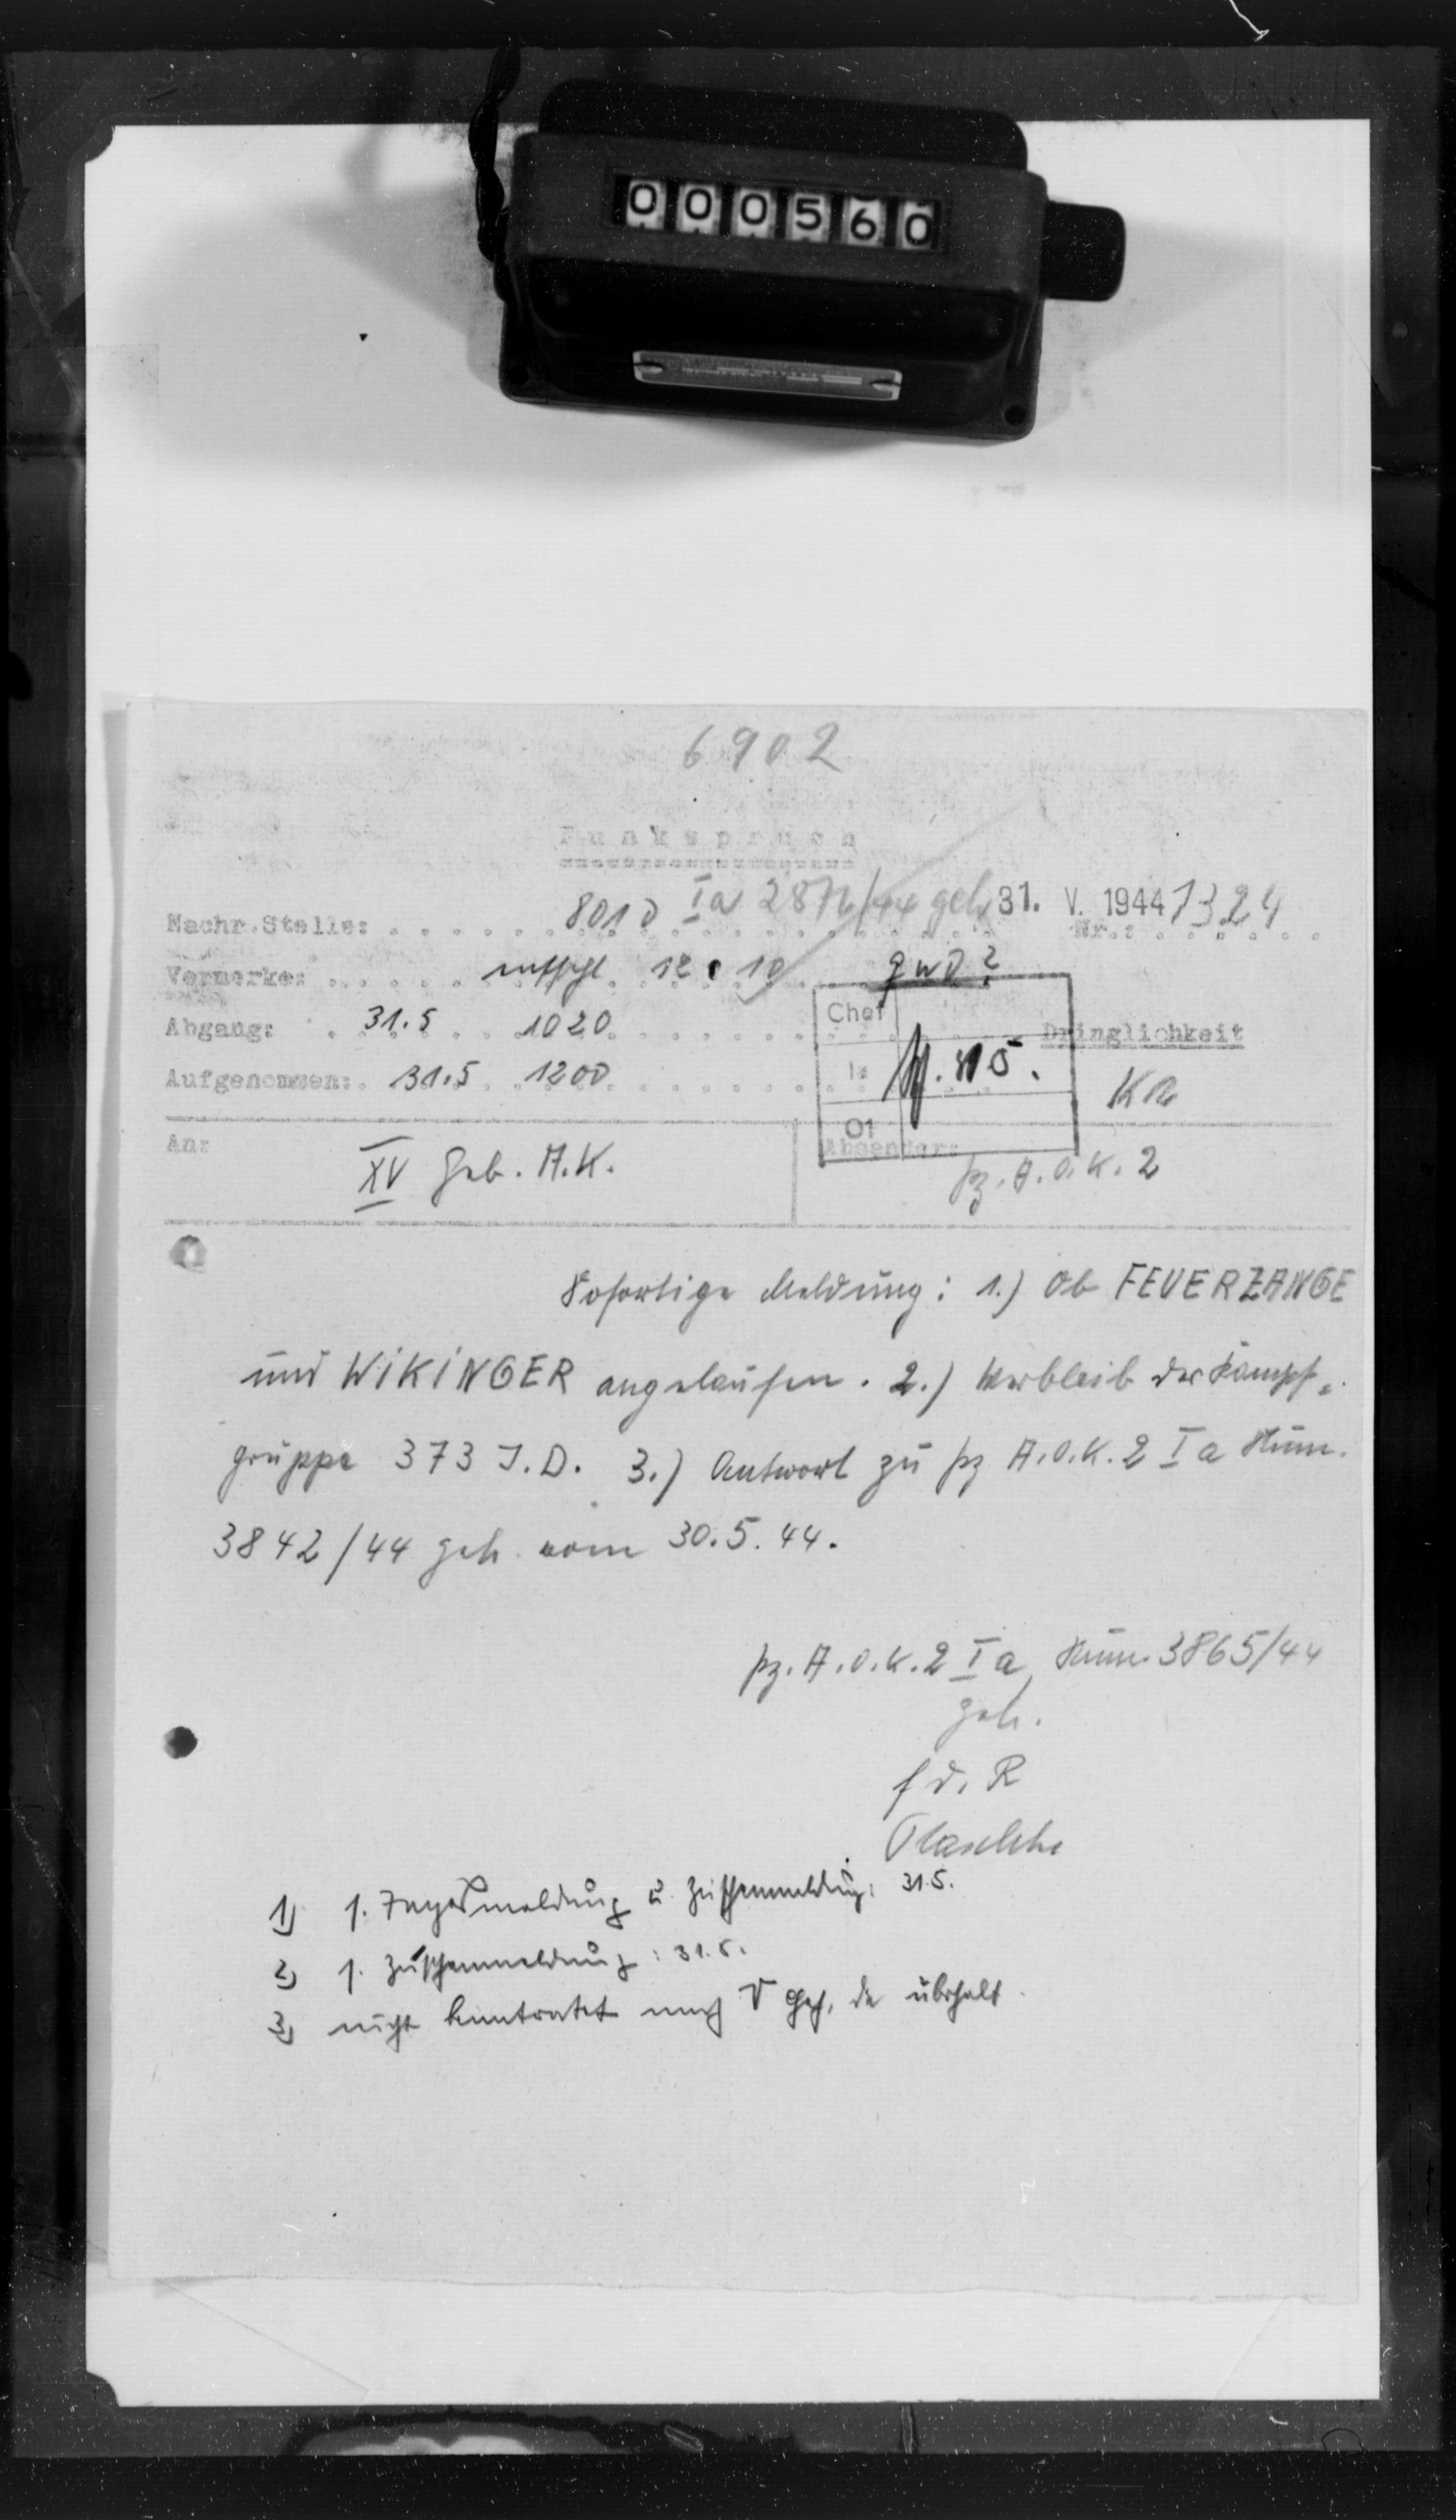 000560
6902
Funkspruch
Nachr.Stelle: 8010 Ia 2876/44 geh. 31. V. 1944 Nr.: 1324
Vermerke: entschl. 12 10 qwd?
Chef
Abgang: 31.5 1020 Dringlichkeit
Ia
Aufgenommen: 31.5 1200 KR
O1
An: XV Geb. A.K. Absender: Pz. A.O.K. 2
Sofortige Meldung: 1.) Ob FEUERZANGE
und WIKINGER angelaufen. 2.) Verbleib der Kampf=
gruppe 373 I.D. 3.) Antwort zu Pz A.O.K. 2 Ia Num.
3842/44 geh. vom 30.5.44.
Pz. A.O.K. 2 Ia Num. 3865/44
geh.
f d. R
1) s. Tagesmeldung u. Zwischenmeldung: 31.5.
2) s. Zwischenmeldung: 31.5.
3) nicht beantwortet da überholt.